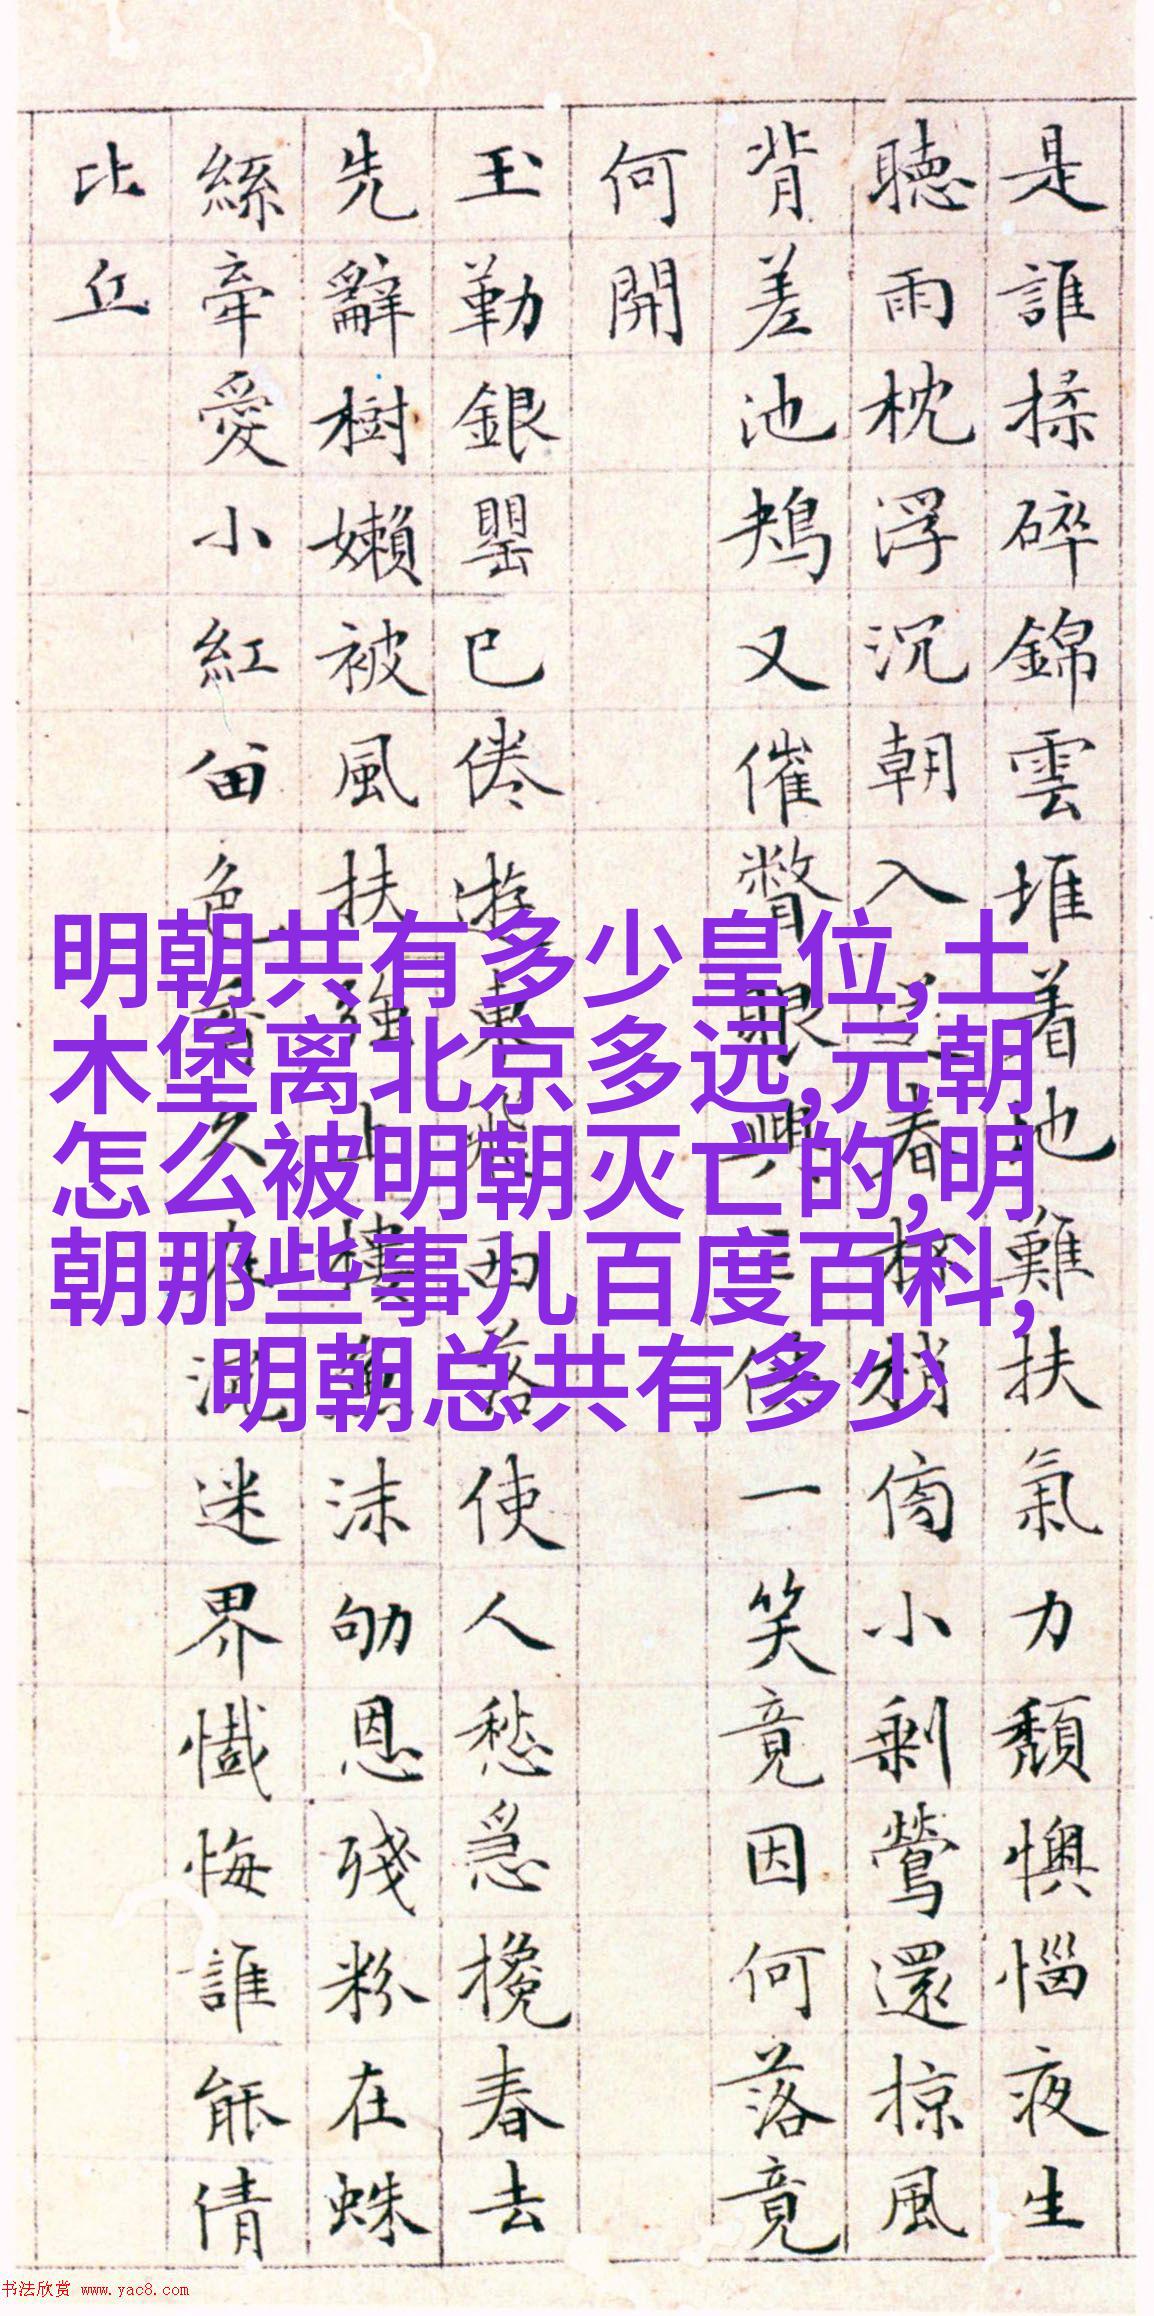 是誰揉碎錦雲堆着地難扶氣力頹懊惱夜生
聽雨枕浮沉朝入春梢傍小剩鶯還掠風
背差池鳺又催瞥眼興一笑竟因何落竟
何開
玉勒銀罌已倦游東飛西落使人愁急攙春去
先辭樹嬾被風扶強上樓沫劬恩殘粉在蛛
絲牽愛小紅留色香久在泥迷界懺悔誰能倩
比丘
明朝共有多少皇位,土
木堡离北京多远,元朝
怎么被明朝灭亡的,明
朝那些事儿百度百科,
明朝总共有多少
书法欣赏 www.yac8.com